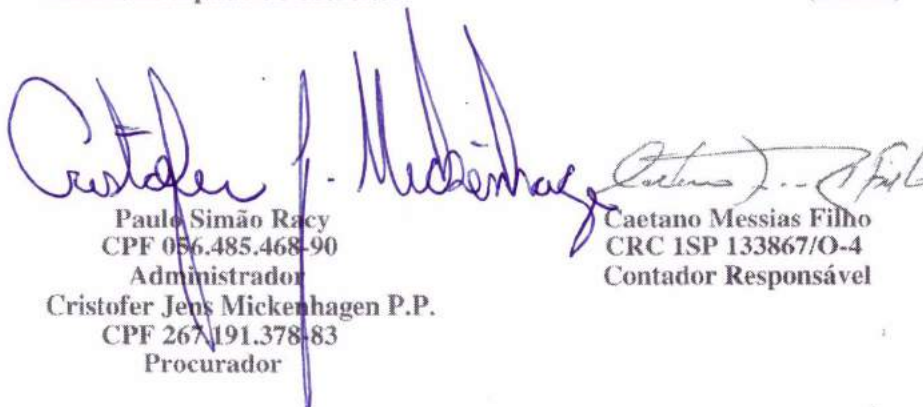 Cristofer J. Mickenhagen
Paulo Simão Racy
CPF 056.485.468-90
Administrador
Cristofer Jens Mickenhagen P.P.
CPF 267.191.378-83
Procurador
Caetano Messias Filho
CRC 1SP 133867/O-4
Contador Responsável